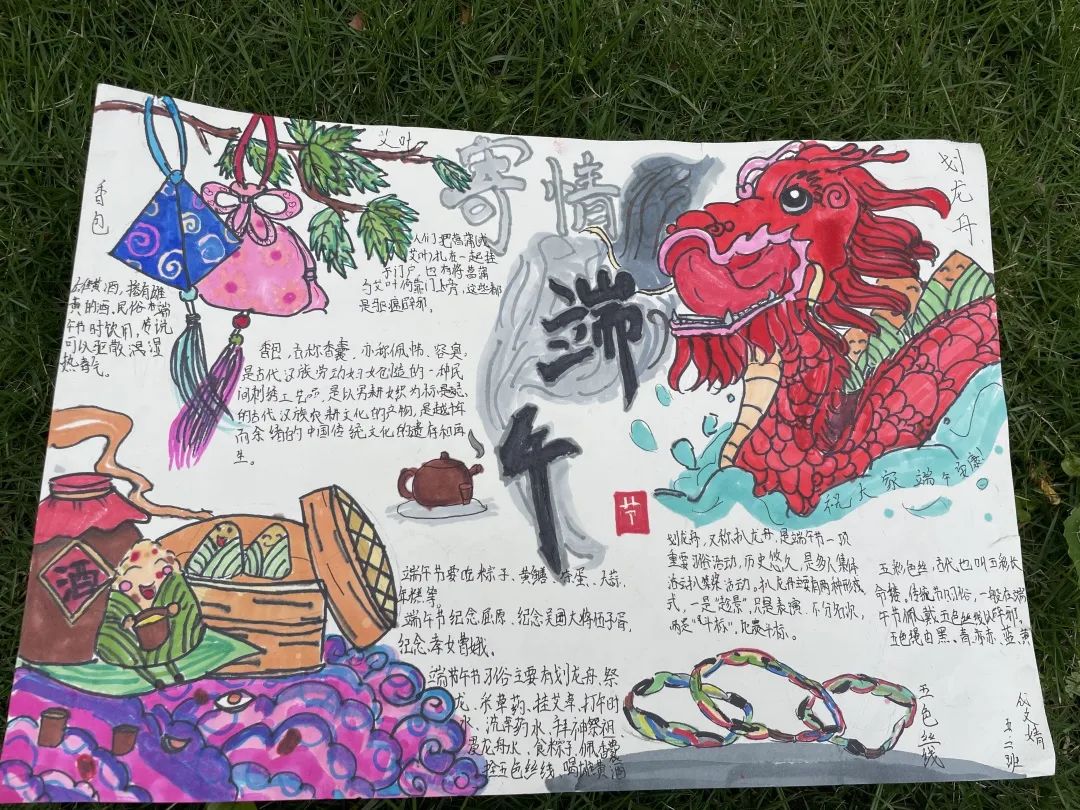 寄情
端午
节
艾叶
香包
划龙舟
人们把菖蒲或
艾叶扎在一起挂
于门户,也有将菖蒲
与艾叶的靠门上旁,这些都
是驱瘟辟邪。
雄黄酒,搭有雄
黄的酒,民俗在端
午节时饮用,传说
可以驱散湿漫
热毒气。
香包,古称香囊、亦称佩帏、容臭,
是古代汉族劳动妇女创造的一种民
间刺绣工艺品,是以男耕女织为标是起
的古代汉族农耕文化的产物,是越千年
而余绪的中国传统文化的遗存和再
生。
酒
祝大家端午安康!
端午节要吃粽子、黄鳝、蛋、大蒜、
年糕等。
端午节纪念屈原、纪念吴国大将伍子胥、
纪念孝女曹娥。
端节午节习俗主要有划龙舟、祭
龙、采草药、挂艾草、打午时
水、洗草药水、拜神祭祖
龙舟水、食粽子、佩香囊
拴五色丝线、喝雄黄酒
划龙舟,又称扒龙舟,是端午节一项
重要习俗活动,历史悠久,是多人集体
活动,扒龙舟主要有两种形
式,一是“趁景”,只是表演,不分胜负,
两是“斗标”,比赛斗标。
五彩色丝,古代也叫五彩长
命楼。传统节习俗,一般在端
午节佩戴五色丝线以辟邪,
五色绳由黑、青、赤、蓝、黄
五色丝线
文婧
五二班